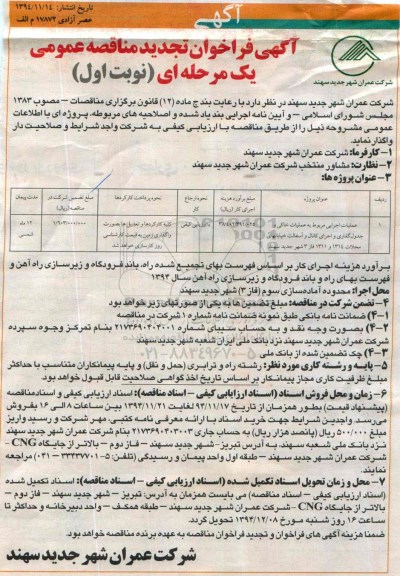 تاریخ انتشار: ۱۳۹۴/۱۱/۱۴
عصر آزادی ۱۷۸۷۲ م الف
آگهی
آگهی فراخوان تجدید مناقصه عمومی
یک مرحله ای (نوبت اول)
شرکت عمران شهر جدید سهند
شرکت عمران شهر جدید سهند در نظر دارد با رعایت بند ج ماده (۱۲) قانون برگزاری مناقصات – مصوب ۱۳۸۳
مجلس شورای اسلامی – و آیین نامه اجرایی بند یاد شده و اصلاحیه های مربوطه، پروژه ای با اطلاعات
عمومی مشروحه ذیل را از طریق مناقصه با ارزیابی کیفی به شرکت واجد شرایط و صلاحیت دار
واگذار نماید.
۱- کارفرما: شرکت عمران شهر جدید سهند
۲- نظارت: مشاور منتخب شرکت عمران شهر جدید سهند
۳- عنوان پروژه ها:
ردیف عنوان پروژه مبلغ برآورد هزینه اجرای کار (ریال) نحوه ارجاع کار نحوه پرداخت کارکردها مبلغ تضمین شرکت در مناقصه (ریال) مدت پیمان
۱ عملیات اجرایی مربوط به عملیات خاکی و جدول گذاری و اجرای کانال و آسفالت خیابانهای محلات ۱۳۱۴ و ۱۳۱۱ فاز ۳ شهر جدید سهند ارزیابی کیفی کلیه کارکردها و تعدیل ها بصورت واگذاری زمین به قیمت کارشناسی روز کارسازی خواهد شد ۱/۹۰۳/۰۰۰/۰۰۰ ۱۲ ماه شمسی
برآورد هزینه اجرای کار بر اساس فهرست بهای تجمیع شده راه، باند فرودگاه و زیرسازی راه آهن و
فهرست بهای راه و باند فرودگاه و زیرسازی راه آهن سال ۱۳۹۳
محل اجرا: محدوده آماده سازی سوم (فاز ۳) شهر جدید سهند
۴- تضمین شرکت در مناقصه: مبلغ تضمین ها به یکی از صورتهای زیر خواهد بود
۴-۱) ضمانت نامه بانکی طبق نمونه ضمانت نامه شماره ۱ شرکت در مناقصه
۴-۲) بصورت وجه نقد و به حساب سیبای شماره ۲۱۷۳۶۹۰۴۰۲۰۰۱ بنام تمرکز وجوه سپرده
شرکت عمران شهر جدید سهند نزد بانک ملی ایران شعبه شهر جدید سهند
۴-۳) چک تضمین شده از بانک ملی
۵- پایه و رشته کاری مورد نظر: رشته راه و ترابری (حمل و نقل) و پایه پیمانکاران متناسب با حداکثر
مبلغ ظرفیت کاری مجاز پیمانکار بر اساس تاریخ اخذ گواهی صلاحیت قابل قبول خواهد بود.
۶- زمان و محل فروش اسناد (اسناد ارزیابی کیفی – اسناد مناقصه): اسناد ارزیابی کیفی و اسناد مناقصه
(پیشنهاد قیمت) بطور همزمان از تاریخ ۹۴/۱۱/۱۷ لغایت ۱۳۹۴/۱۱/۲۱ بین ساعات ۸ الی ۱۶ بفروش
می رسد. واجدین شرایط جهت خرید اسناد با ارائه معرفی نامه کتبی، مهر شرکت و رسید واریز
مبلغ ۵۰۰/۰۰۰ ریال (پانصد هزار ریال) به حساب جاری ۲۱۷۳۶۹۰۴۰۳۰۰۳ بنام شرکت عمران شهر جدید سهند
نزد بانک ملی شعبه سهند، به آدرس تبریز – شهر جدید سهند – فاز دوم – بالاتر از جایگاه CNG –
شرکت عمران شهر جدید سهند – طبقه اول واحد پیمان و رسیدگی (تلفن: ۵-۳۳۴۳۷۷۰۱-۰۴۱) مراجعه
نمایند.
۷- محل و زمان تحویل اسناد تکمیل شده (اسناد ارزیابی کیفی – اسناد مناقصه): اسناد تکمیل شده
(اسناد ارزیابی کیفی – اسناد مناقصه) می بایست همزمان به آدرس: تبریز – شهر جدید سهند – فاز دوم –
بالاتر از جایگاه CNG – شرکت عمران شهر جدید سهند – طبقه همکف – واحد دبیرخانه و حداکثر تا
ساعت ۱۶ روز شنبه مورخ ۱۳۹۴/۱۲/۰۸ تحویل گردد.
ضمنا هزینه آگهی های فراخوان و تجدید فراخوان مناقصه به عهده برنده مناقصه خواهد بود.
شرکت عمران شهر جدید سهند